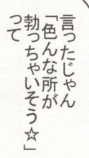 言ったじゃん
「色んな所が
勃っちゃいそう☆」
って